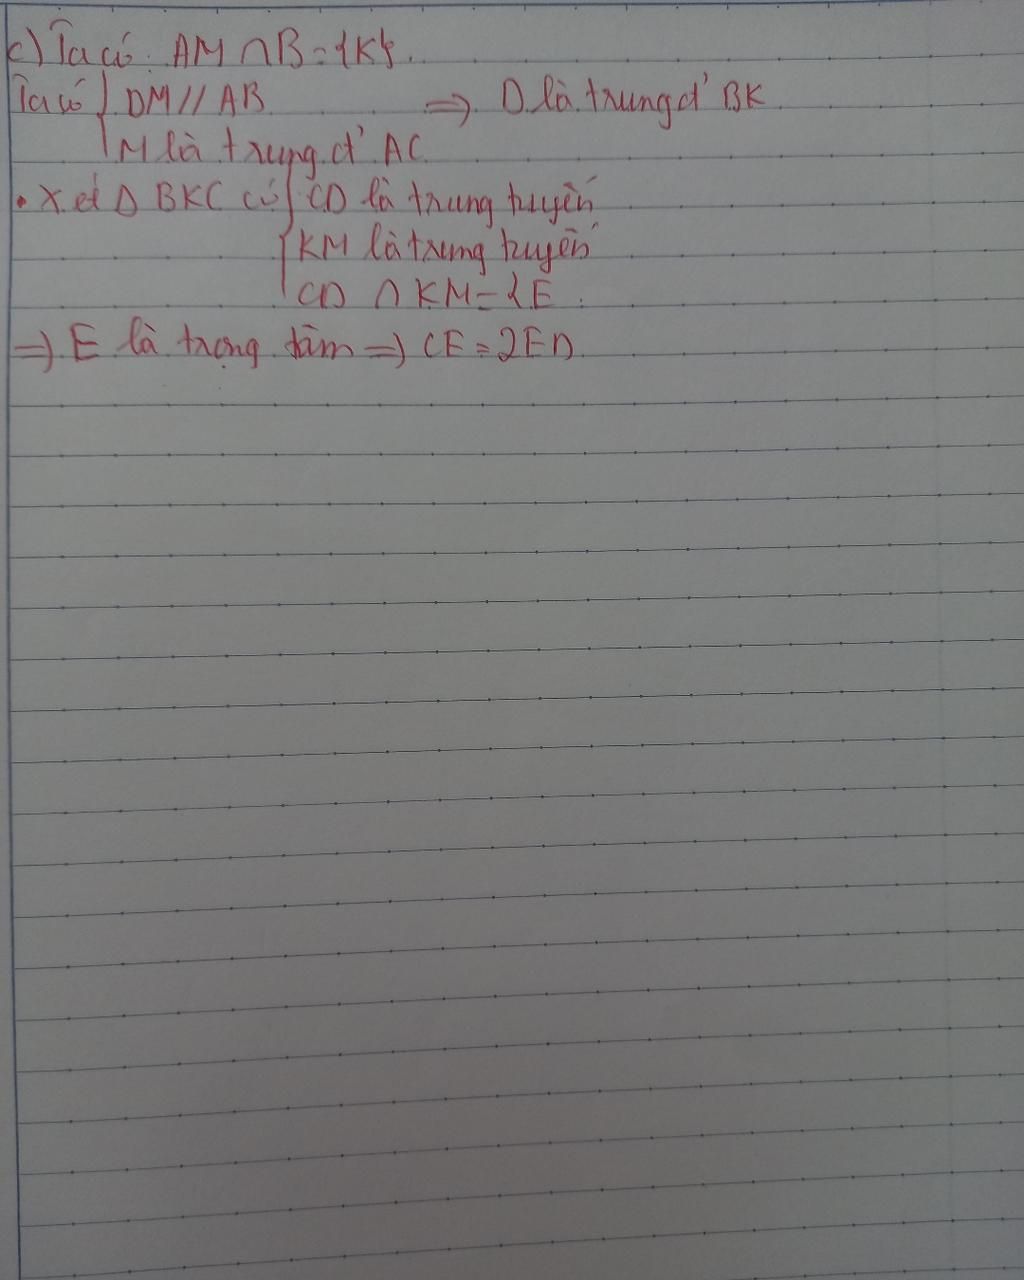 c) Ta có: AM ∩ B = {K}.
Ta có { DM // AB ⇒ D là trung đ' BK
M là trung đ' AC
• Xét Δ BKC có { CD là trung tuyến
KM là trung tuyến
CD ∩ KM = {E.
⇒ E là trọng tâm ⇒ CE = 2ED